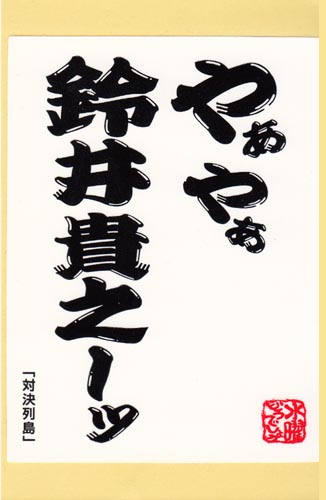 やぁやぁ
鈴井貴之ーッ
「対決列島」
水曜
どうでしょう